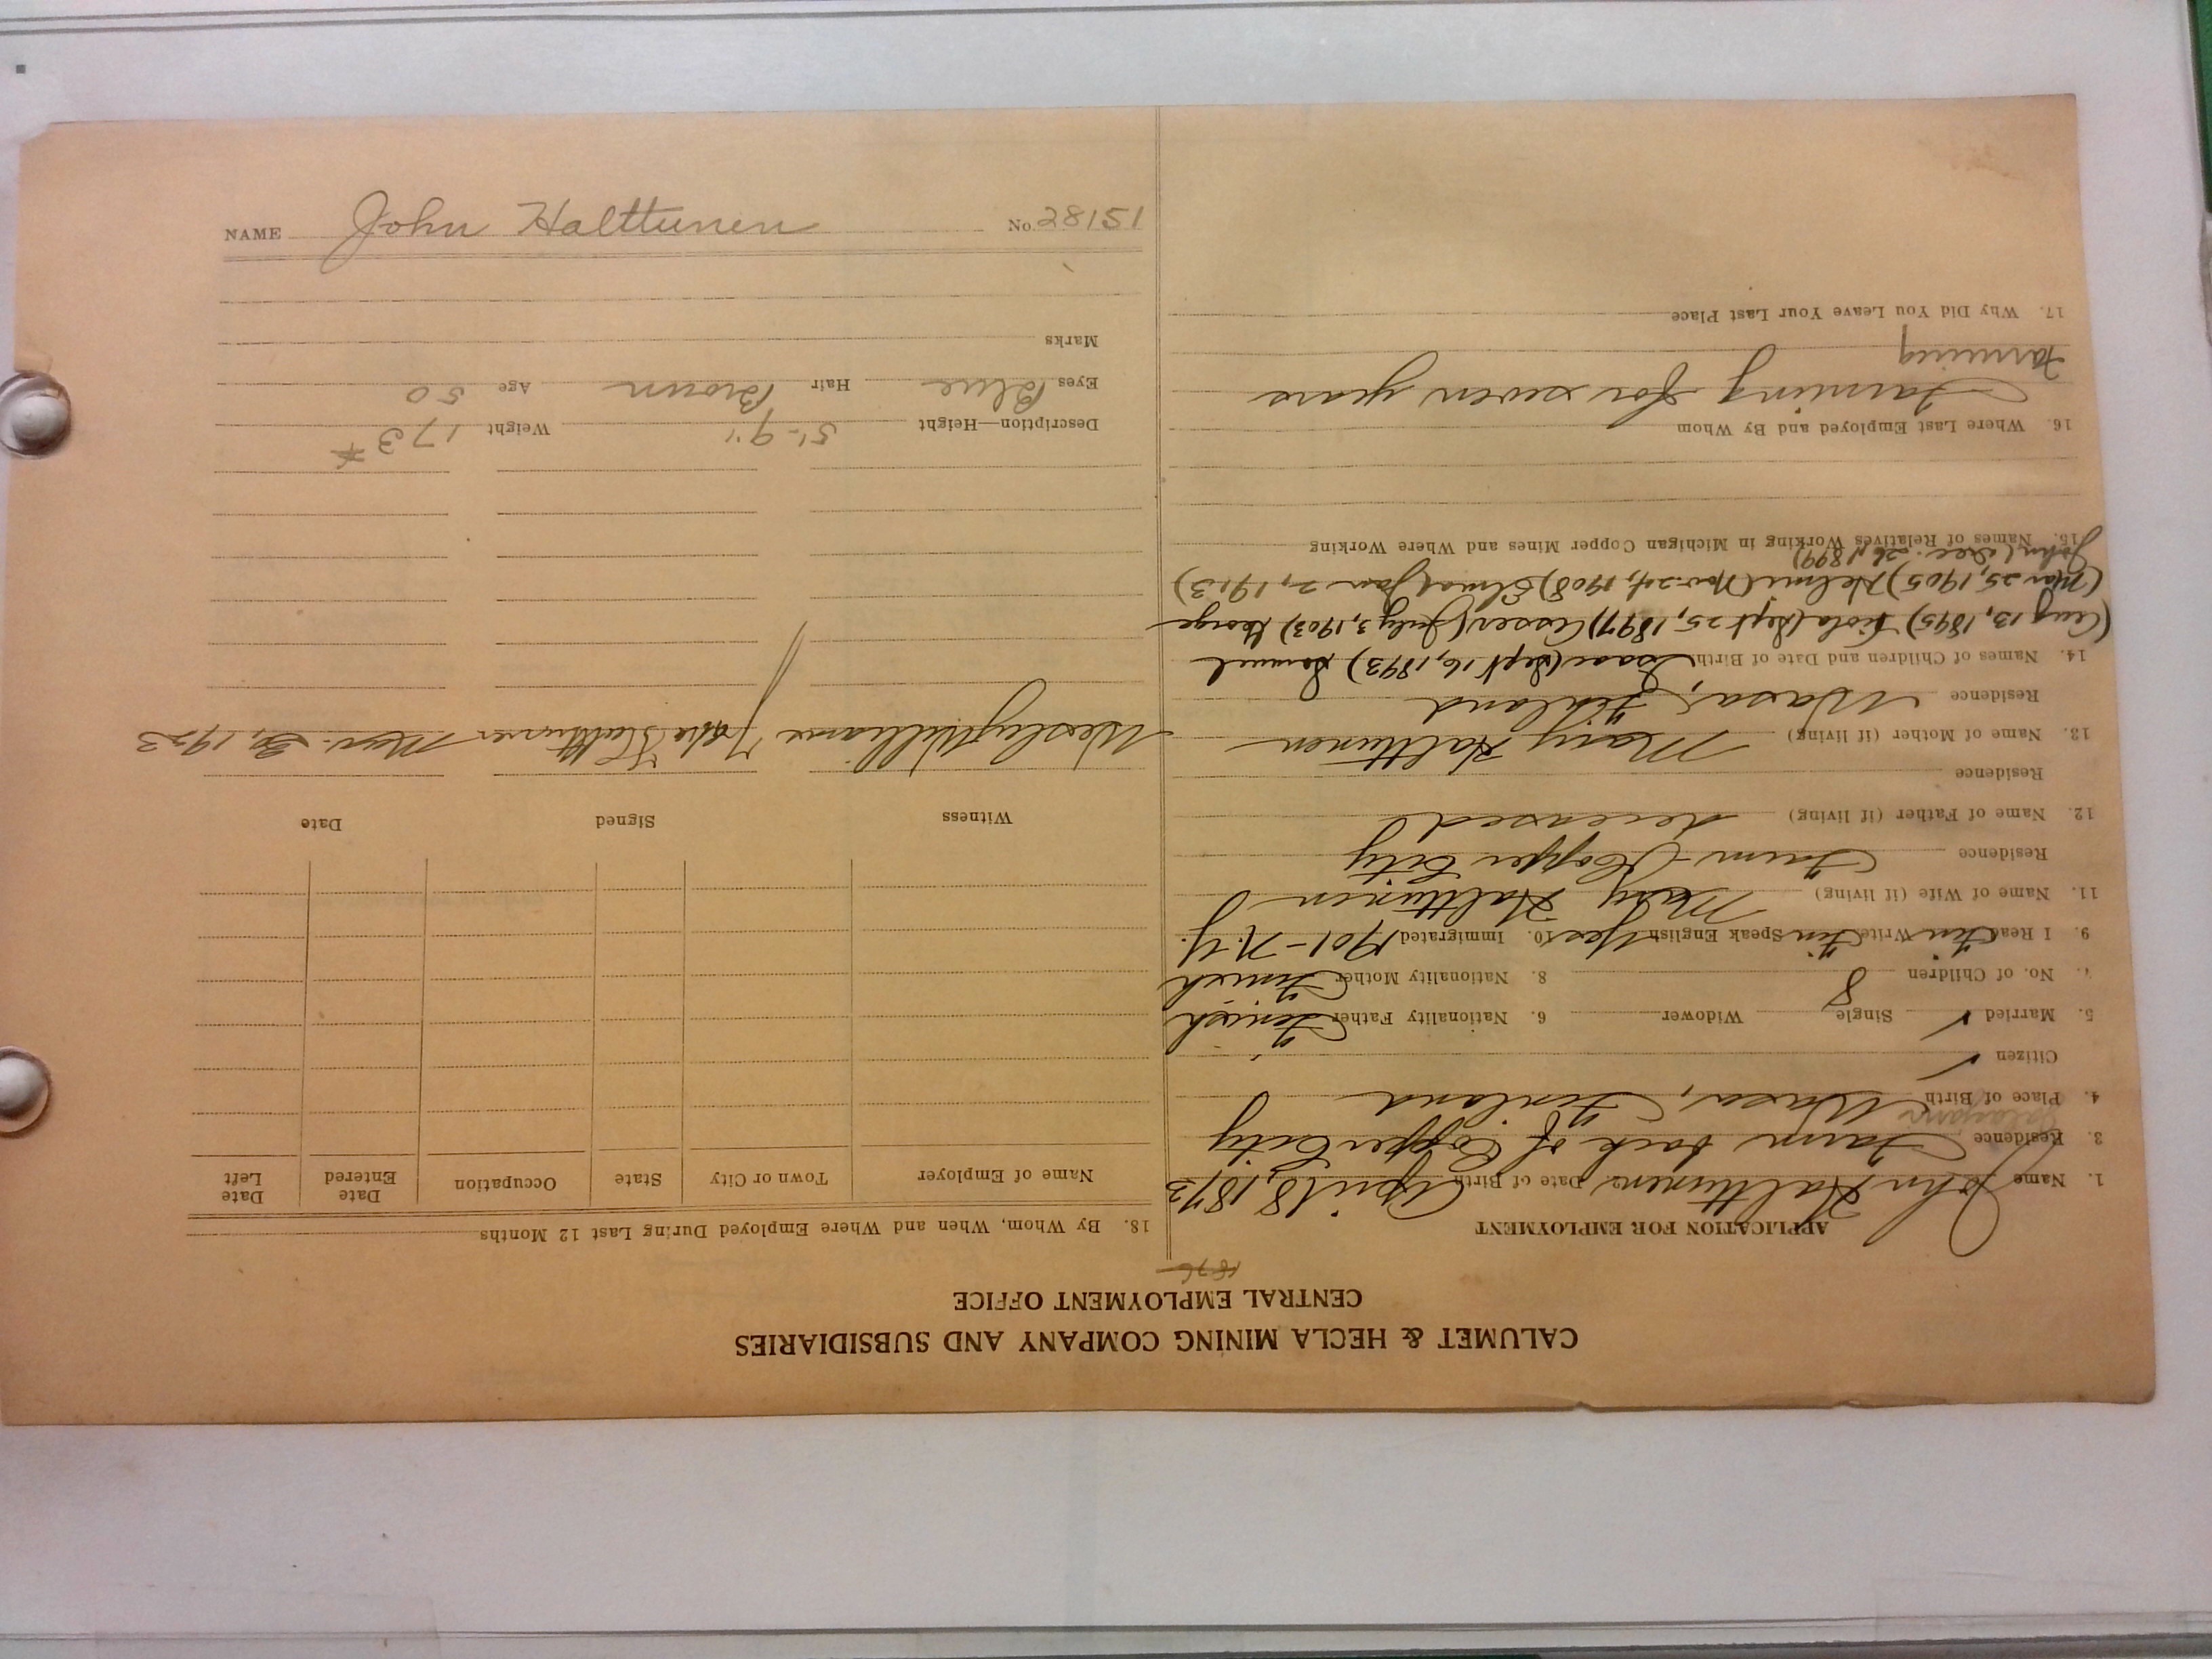 CALUMET & HECLA MINING COMPANY AND SUBSIDIARIES
CENTRAL EMPLOYMENT OFFICE
1876
APPLICATION FOR EMPLOYMENT
1. Name John Halttunen 2. Date of Birth April 8, 1873
3. Residence Farm back of Copper City
4. Place of Birth Wasa, Finland
Citizen ✓
5. Married ✓ Single Widower 6. Nationality Father Finish
7. No. of Children 8 8. Nationality Mother Finish
9. I Read Fin Write Fin Speak English Yes 10. Immigrated 1901-N.Y.
11. Name of Wife (if living) Mary Halttunen
Residence Farm Copper City
12. Name of Father (if living) deceased
Residence
13. Name of Mother (if living) Mary Halttunen
Residence Wasa, Finland
14. Names of Children and Date of Birth Isaac (Sept 16, 1893) Samuel
(Aug 13, 1895) (Sept 25, 1897) (July 3, 1903) George
(Mar 25, 1905) Helmi (Nov. 24, 1908) Elma (Jan 2, 1913)
John (Dec. 26, 1899)
15. Names of Relatives Working in Michigan Copper Mines and Where Working
16. Where Last Employed and By Whom
Farming for seven years
Farming
17. Why Did You Leave Your Last Place
18. By Whom, When and Where Employed During Last 12 Months
Name of Employer Town or City State Occupation Date Entered Date Left
Witness Signed Date
Wesley Williams Halttunen 1923
Description—Height 5'-9" Weight 173 #
Eyes Blue Hair Brown Age 50
Marks
NAME John Halttunen No. 28151